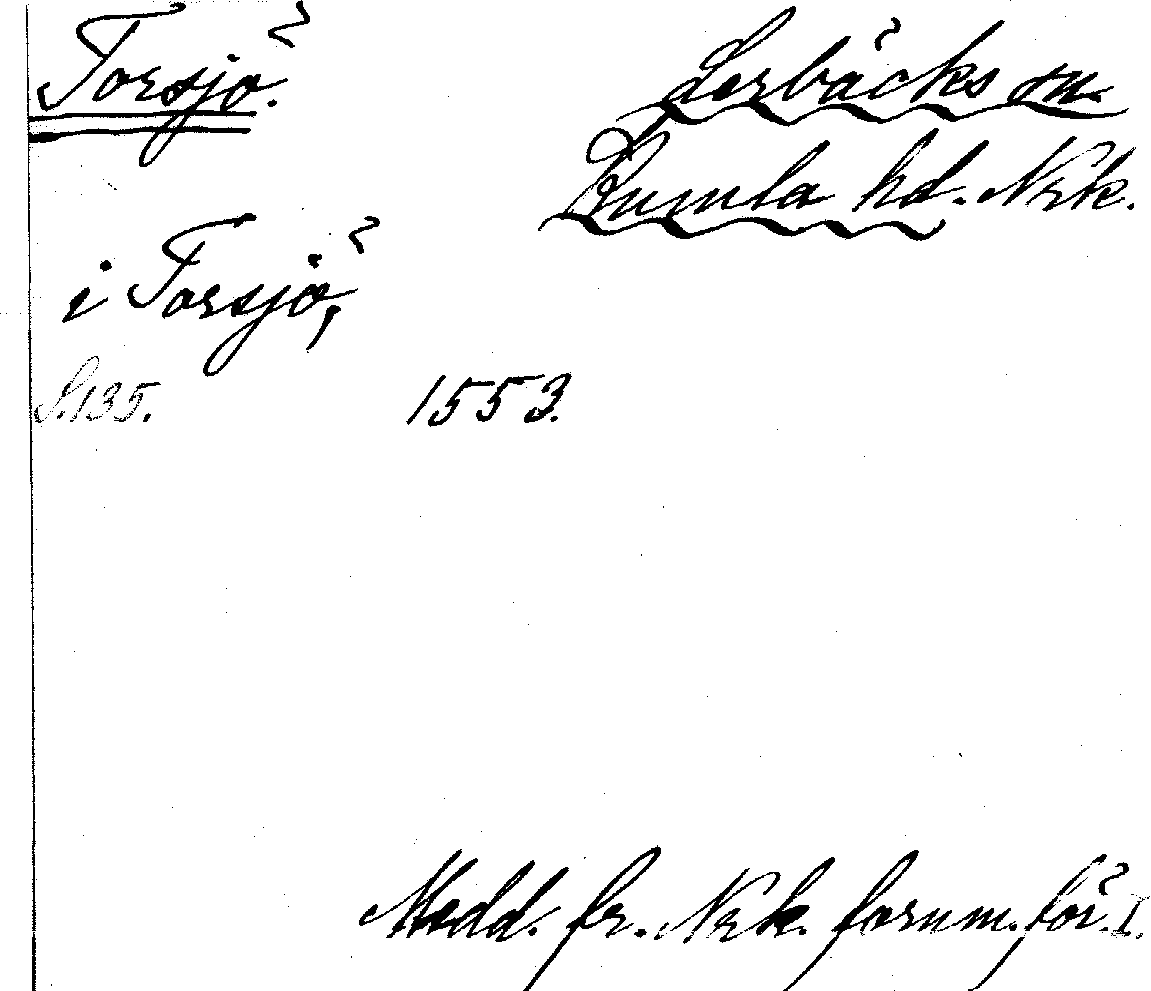 Torsjö.
Lerbäcks sn.
Kumla hd. Nrk.
i Torsjö,
S. 135. 1553.
Medd. fr. Nrk. fornm. för. I.